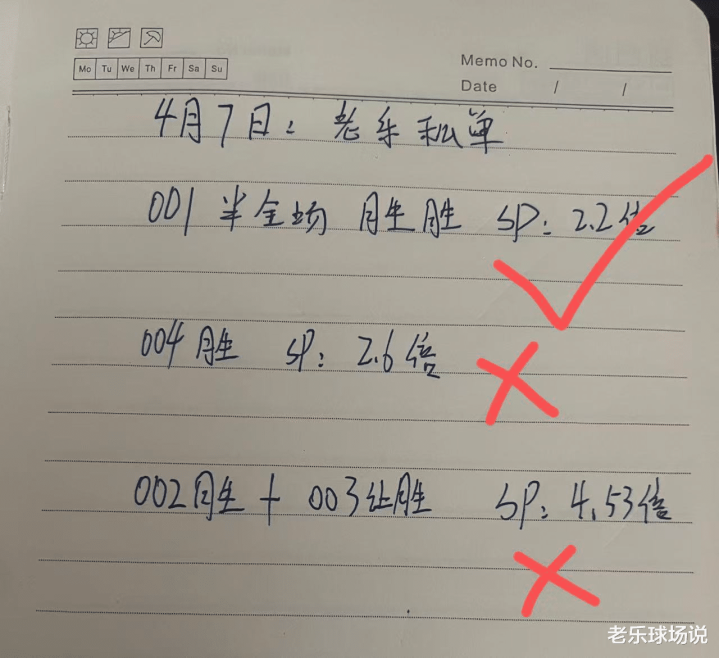 Memo No.
Mo Tu We Th Fr Sa Su
Date / /
4月7日：老乐私单
001 半全场 胜胜 SP：2.2倍
004胜 SP：2.6倍
002胜 + 003让胜 SP：4.53倍
老乐球场说